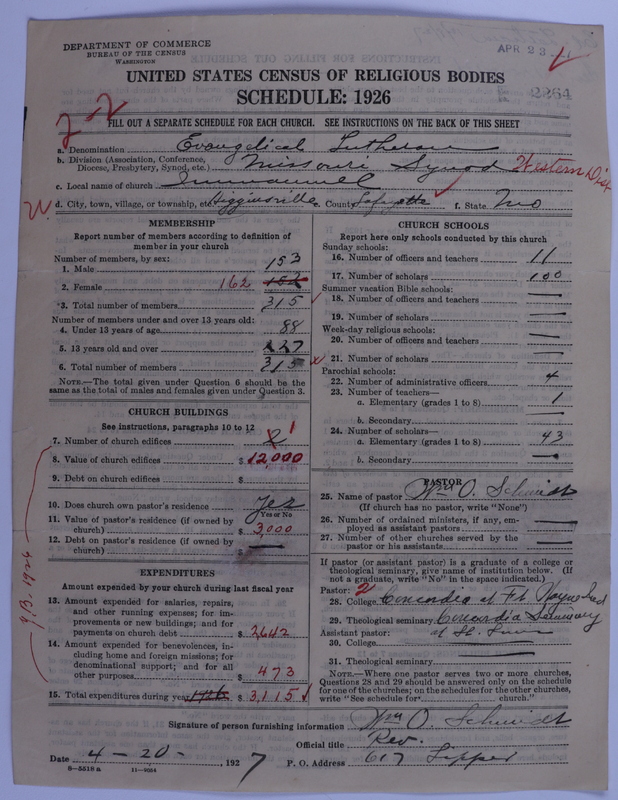 DEPARTMENT OF COMMERCE
BUREAU OF THE CENSUS
WASHINGTON
APR 23
UNITED STATES CENSUS OF RELIGIOUS BODIES
SCHEDULE: 1926
2264
FILL OUT A SEPARATE SCHEDULE FOR EACH CHURCH. SEE INSTRUCTIONS ON THE BACK OF THIS SHEET
a. Denomination Evangelical Lutheran
b. Division (Association, Conference, Diocese, Presbytery, Synod, etc.) Missouri Synod Western Dist
c. Local name of church Immanuel
d. City, town, village, or township, etc. Higginsville e. County Lafayette f. State Mo
MEMBERSHIP
Report number of members according to definition of member in your church
Number of members, by sex:
1. Male 153
2. Female 162 152
3. Total number of members 315
Number of members under and over 13 years old:
4. Under 13 years of age 88
5. 13 years old and over 227
6. Total number of members 315
NOTE.—The total given under Question 6 should be the same as the total of males and females given under Question 3.
CHURCH BUILDINGS
See instructions, paragraphs 10 to 12
7. Number of church edifices 1
8. Value of church edifices $ 12,000
9. Debt on church edifices $
10. Does church own pastor's residence Yes
Yes or No
11. Value of pastor's residence (if owned by church) $ 3,000
12. Debt on pastor's residence (if owned by church) $ —
EXPENDITURES
Amount expended by your church during last fiscal year
13. Amount expended for salaries, repairs, and other running expenses; for improvements or new buildings; and for payments on church debt $ 2,642
14. Amount expended for benevolences, including home and foreign missions; for denominational support; and for all other purposes $ 473
15. Total expenditures during year 1926 $ 3,115
CHURCH SCHOOLS
Report here only schools conducted by this church
Sunday schools:
16. Number of officers and teachers 11
17. Number of scholars 100
Summer vacation Bible schools:
18. Number of officers and teachers —
19. Number of scholars —
Week-day religious schools:
20. Number of officers and teachers —
21. Number of scholars —
Parochial schools:
22. Number of administrative officers 4
23. Number of teachers—
a. Elementary (grades 1 to 8) 1
b. Secondary —
24. Number of scholars—
a. Elementary (grades 1 to 8) 43
b. Secondary —
PASTOR
25. Name of pastor Wm O. Schmidt
(If church has no pastor, write "None")
26. Number of ordained ministers, if any, employed as assistant pastors —
27. Number of other churches served by the pastor or his assistants —
If pastor (or assistant pastor) is a graduate of a college or theological seminary, give name of institution below. (If not a graduate, write "No" in the space indicated.)
Pastor: 2
28. College Concordia at Ft. Wayne Ind
29. Theological seminary Concordia Seminary
Assistant pastor: at St. Louis
30. College
31. Theological seminary
NOTE.—Where one pastor serves two or more churches, Questions 28 and 29 should be answered only on the schedule for one of the churches; on the schedules for the other churches, write "See schedule for church."
Signature of person furnishing information Wm O Schmidt
Official title Rev.
Date 4-20-, 1927 P. O. Address 617 Lipper
8—5518 a 11—9054